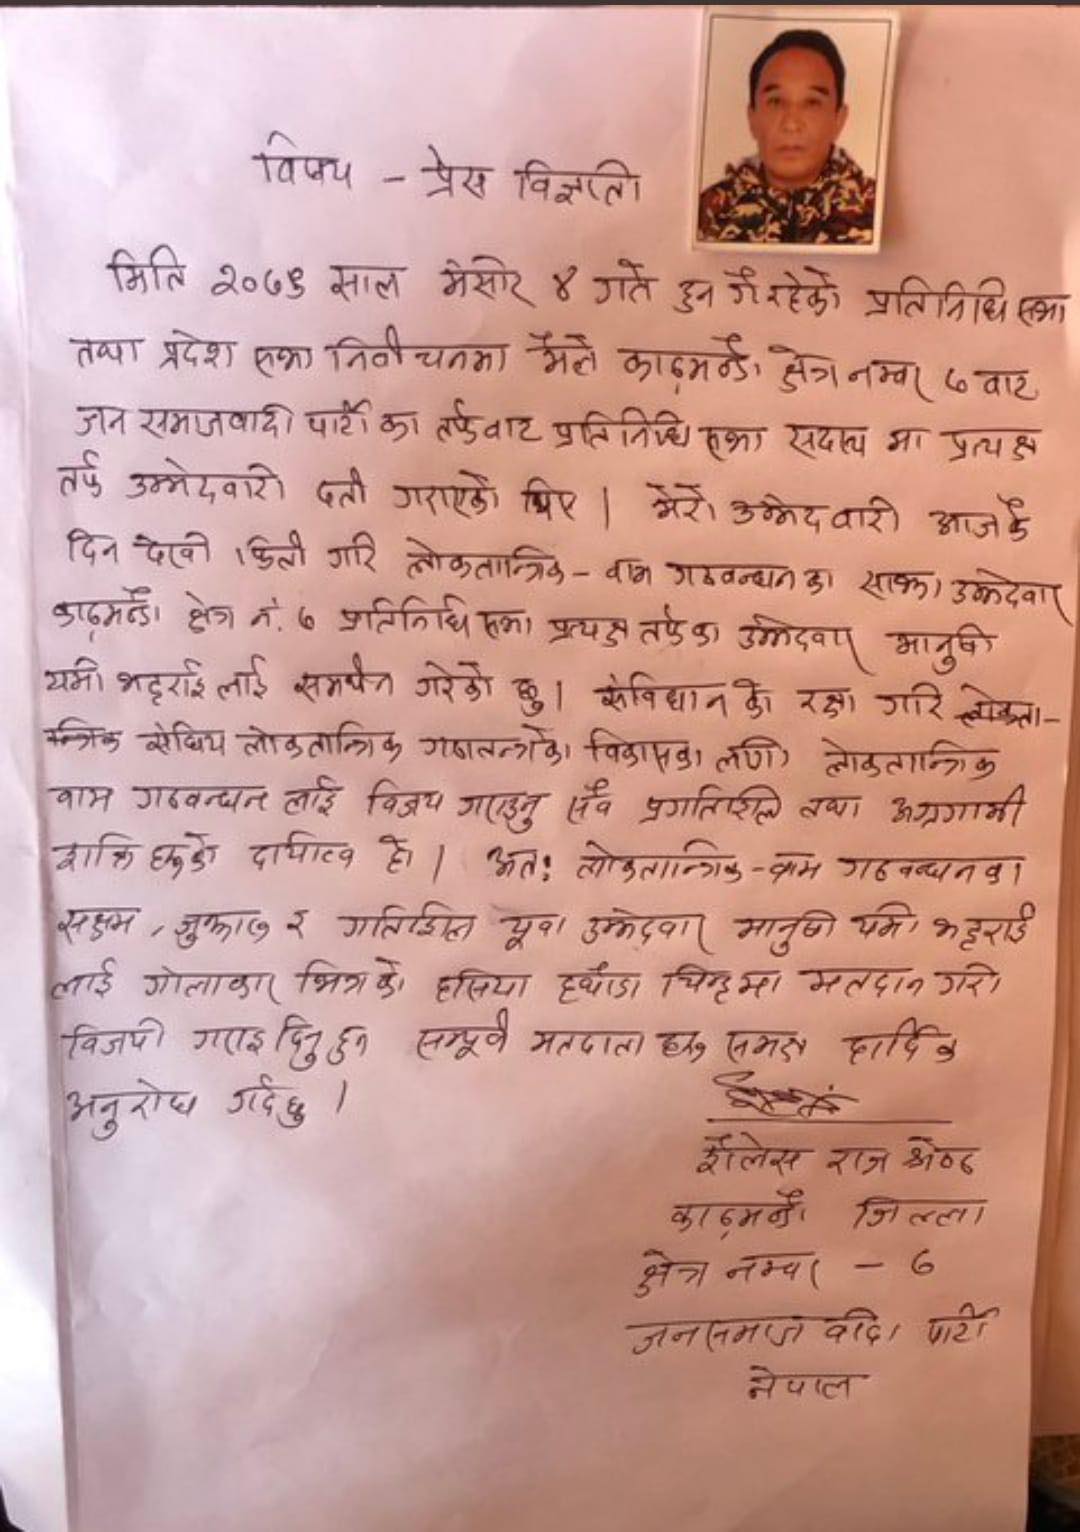 विषय - प्रेस विज्ञप्ति
मिति २०७९ साल मंसीर ४ गते हुन गै रहेको प्रतिनिधि सभा
तथा प्रदेश सभा निर्वाचनमा मैले काठमाण्डौ क्षेत्र नम्बर ७ बाट
जन समाजवादी पार्टी का तर्फबाट प्रतिनिधि सभा सदस्य मा प्रत्यक्ष
तर्फ उम्मेदवारी दर्ता गराएको थिए । मेरो उम्मेदवारी आजकै
दिन देखी फिर्ता गरि लोकतान्त्रिक - वाम गठबन्धन का साझा उम्मेदवार
काठमाण्डौ क्षेत्र नं. ७ प्रतिनिधि सभा प्रत्यक्ष तर्फका उम्मेदवार मानुषी
यमी भट्टराई लाई समर्थन गरेको छु । संविधान को रक्षा गरि लोकता-
न्त्रिक संघिय लोकतान्त्रिक गणतन्त्रको विकासका लागि लोकतान्त्रिक
वाम गठबन्धन लाई विजय गराउनु सबै प्रगतिशिल तथा अग्रगामी
शक्ति हरुको दायित्व हो । अत: लोकतान्त्रिक - वाम गठबन्धन का
सक्षम, जुझारु र गतिशिल यूवा उम्मेदवार मानुषी यमी भट्टराई
लाई गोलाकार भित्रको हसिया हथौडा चिन्हमा मतदान गरी
विजयी गराइ दिनु हुन सम्पूर्ण मतदाता हरु समक्ष हार्दिक
अनुरोध गर्दछु ।
शैलेस राज श्रेष्ठ
काठमाण्डौ जिल्ला
क्षेत्र नम्बर - ७
जनसमाजवादी पार्टी
नेपाल